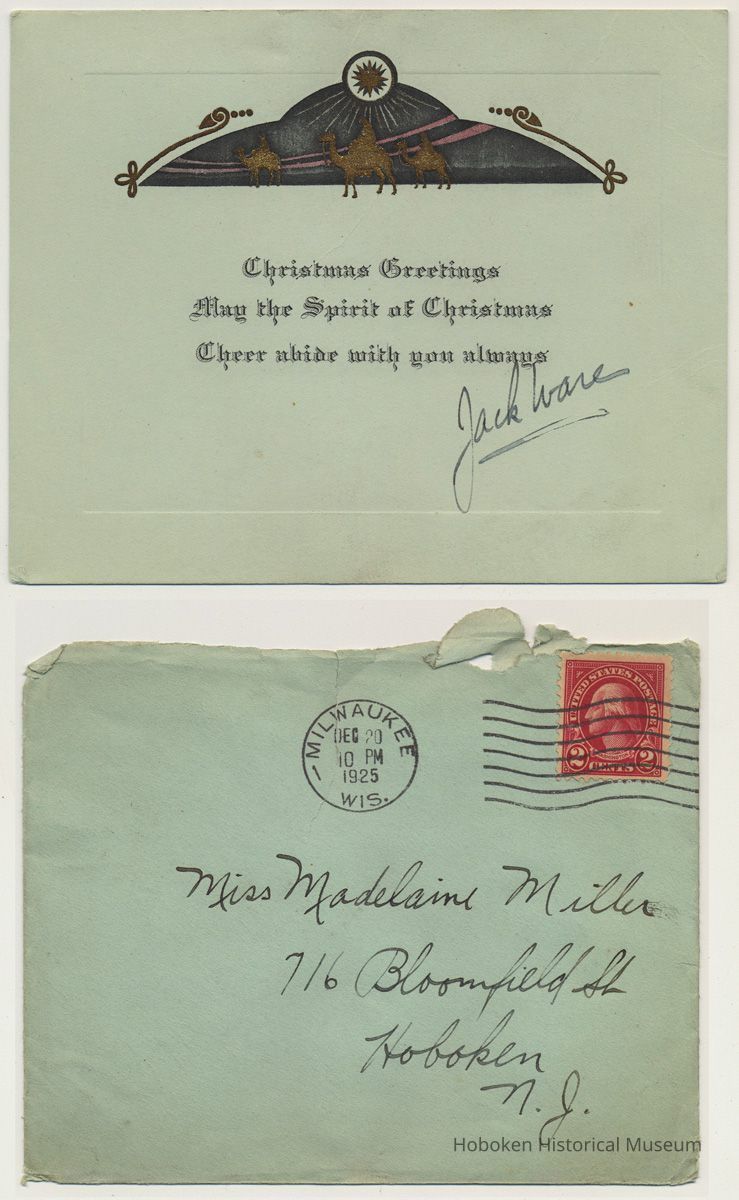 Christmas Greetings
May the Spirit of Christmas
Cheer abide with you always
Jack Ware
MILWAUKEE
DEC 20
10 PM
1925
WIS.
UNITED STATES POSTAGE
WASHINGTON
2 CENTS 2
Miss Madelaine Miller
716 Bloomfield St
Hoboken
N. J.
Hoboken Historical Museum